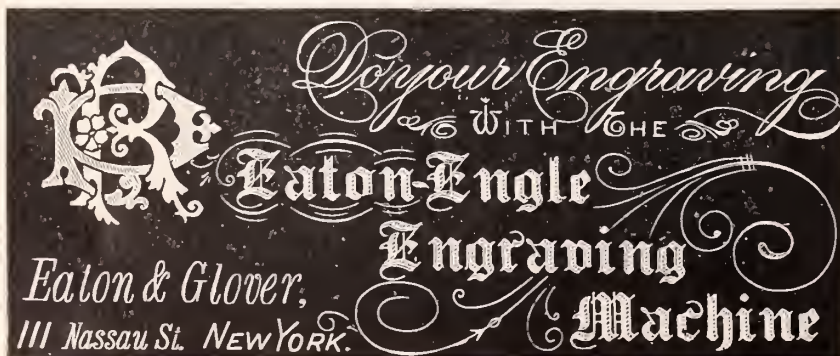 Do your Engraving
WITH THE
Eaton-Engle
Engraving
Machine
Eaton & Glover,
111 Nassau St. NEW YORK.